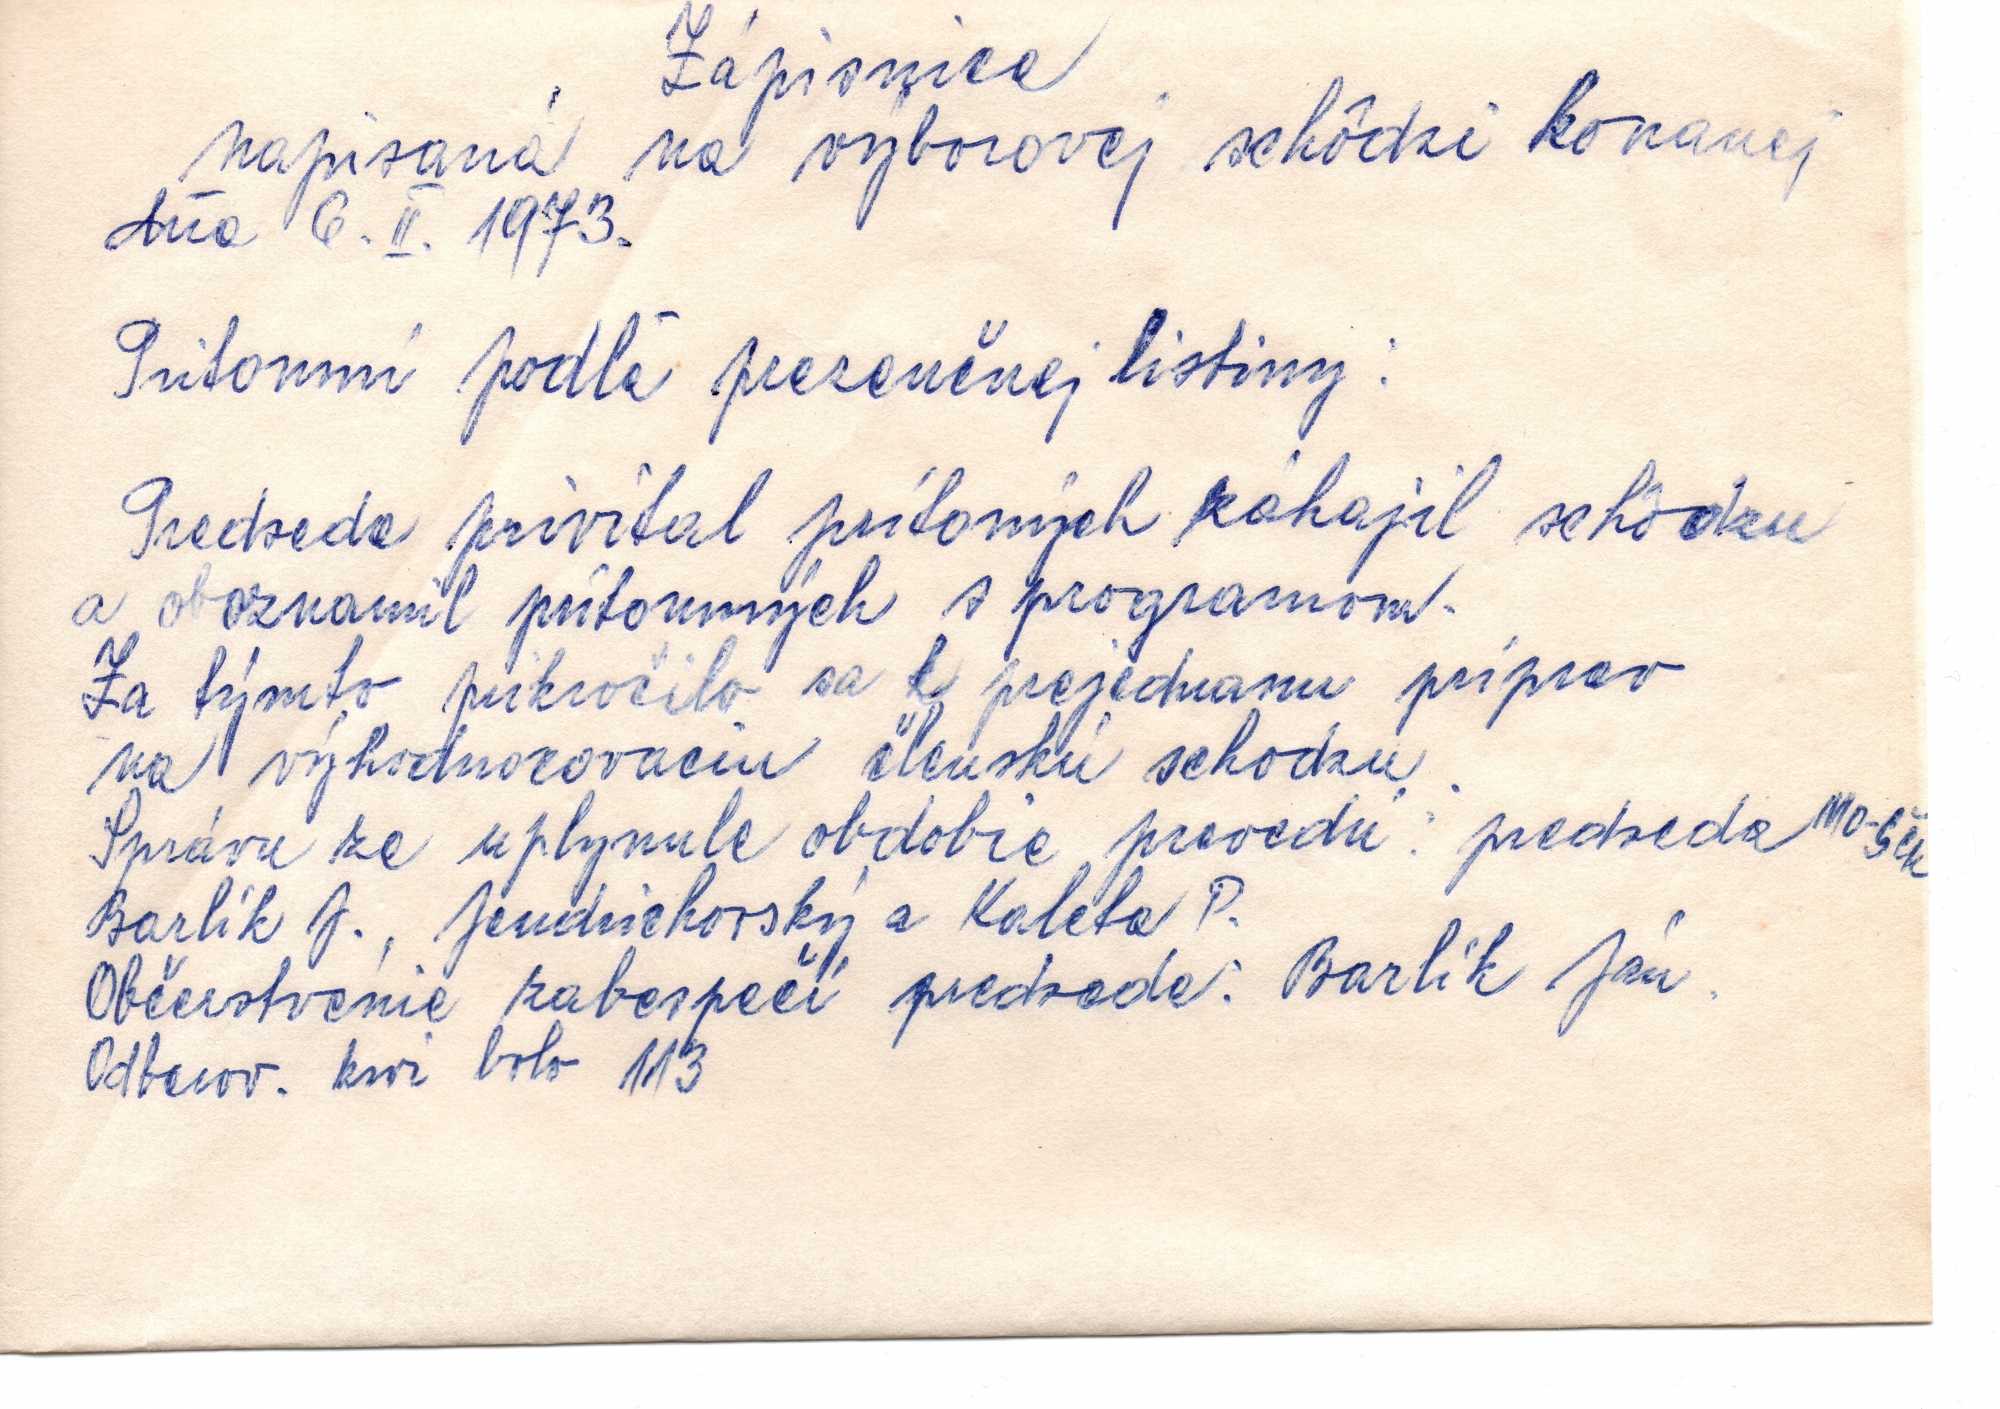 Zápisnica
napísaná na výborovej schôdzi konanej
dňa 6. II. 1973.
Prítomní podľa prezenčnej listiny:
Predseda privítal prítomých záhajil schôdzu
a oboznamil prítomných s programom.
Za týmto prikročilo sa k prejednanu príprav
na výhodnocovaciu člensků schodzu.
Správu ze uplynule obdobie prevedú: predseda Mo-
Barlík J., Jendrichovský a Kaleta P.
Občerstvénie zabespečí predseda. Barlík Ján.
Odberov. krvi bolo 113